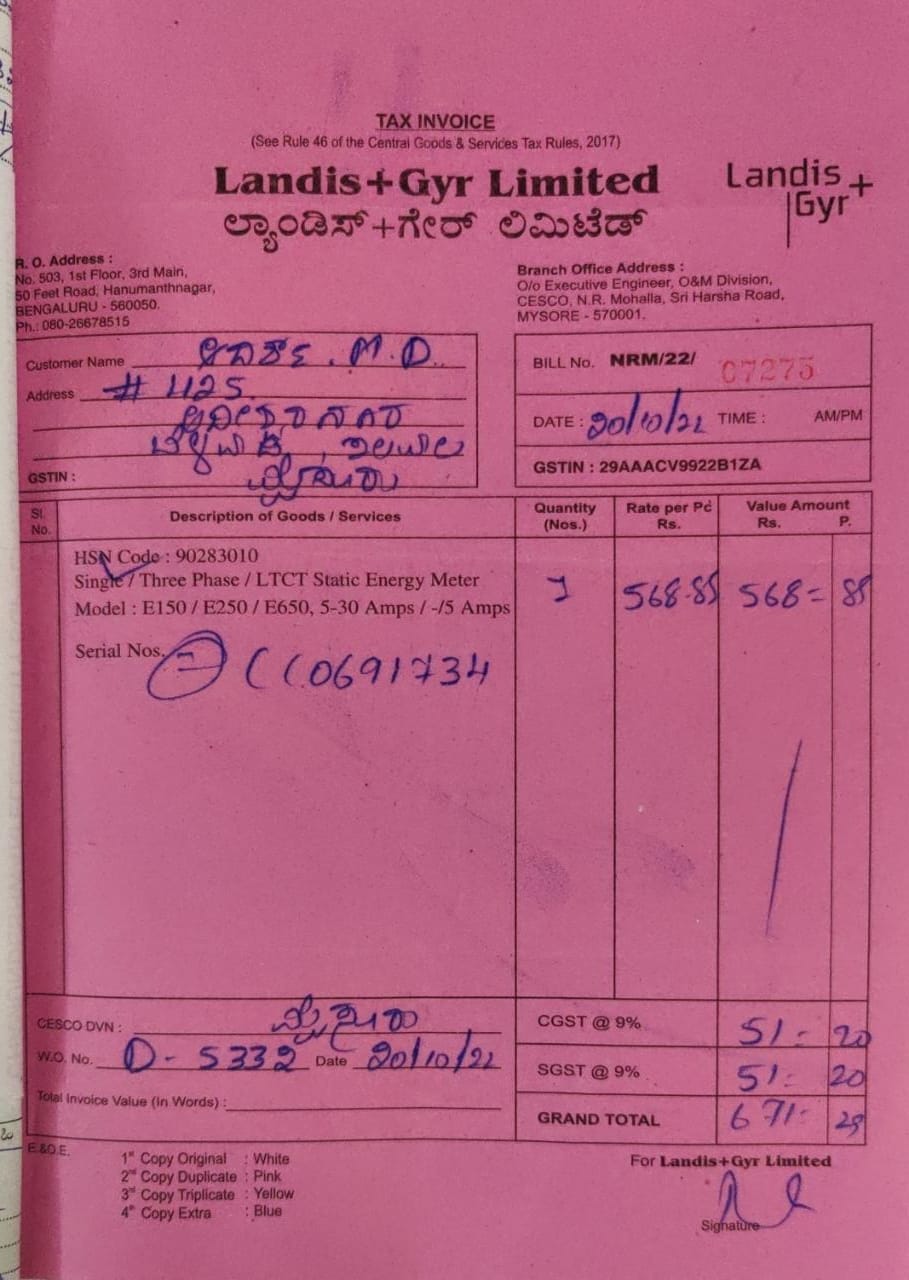 TAX INVOICE
(See Rule 46 of the Central Goods & Services Tax Rules, 2017)
Landis+Gyr Limited
Landis+
Gyr
ಲ್ಯಾಂಡಿಸ್+ಗೇರ್ ಲಿಮಿಟೆಡ್
R. O. Address :
No. 503, 1st Floor, 3rd Main,
50 Feet Road, Hanumanthnagar,
BENGALURU - 560050.
Ph.: 080-26678515
Branch Office Address :
O/o Executive Engineer, O&M Division,
CESCO, N.R. Mohalla, Sri Harsha Road,
MYSORE - 570001.
Customer Name M.D.
Address # 1125
GSTIN : ಮೈಸೂರು
BILL No. NRM/22/ 07275
DATE : 20/10/22 TIME : AM/PM
GSTIN : 29AAACV9922B1ZA
Sl. No. Description of Goods / Services Quantity (Nos.) Rate per Pc Rs. Value Amount Rs. P.
HSN Code : 90283010
Single / Three Phase / LTCT Static Energy Meter 1 568-85 568= 85
Model : E150 / E250 / E650, 5-30 Amps / -/5 Amps
Serial Nos. 0691734
CESCO DVN : ಮೈಸೂರು CGST @ 9% 51- 20
W.O. No. D-5332 Date 20/10/22 SGST @ 9% 51- 20
Total Invoice Value (In Words) : GRAND TOTAL 671-
E.&O.E.
1st Copy Original : White
2nd Copy Duplicate : Pink
3rd Copy Triplicate : Yellow
4th Copy Extra : Blue
For Landis+Gyr Limited
Signature